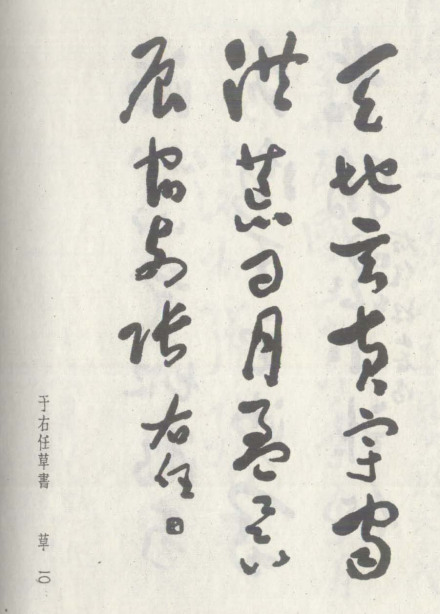 天地玄黄宇宙
洪荒日月盈昃
辰宿列张 右任
于右任草書 草 一〇